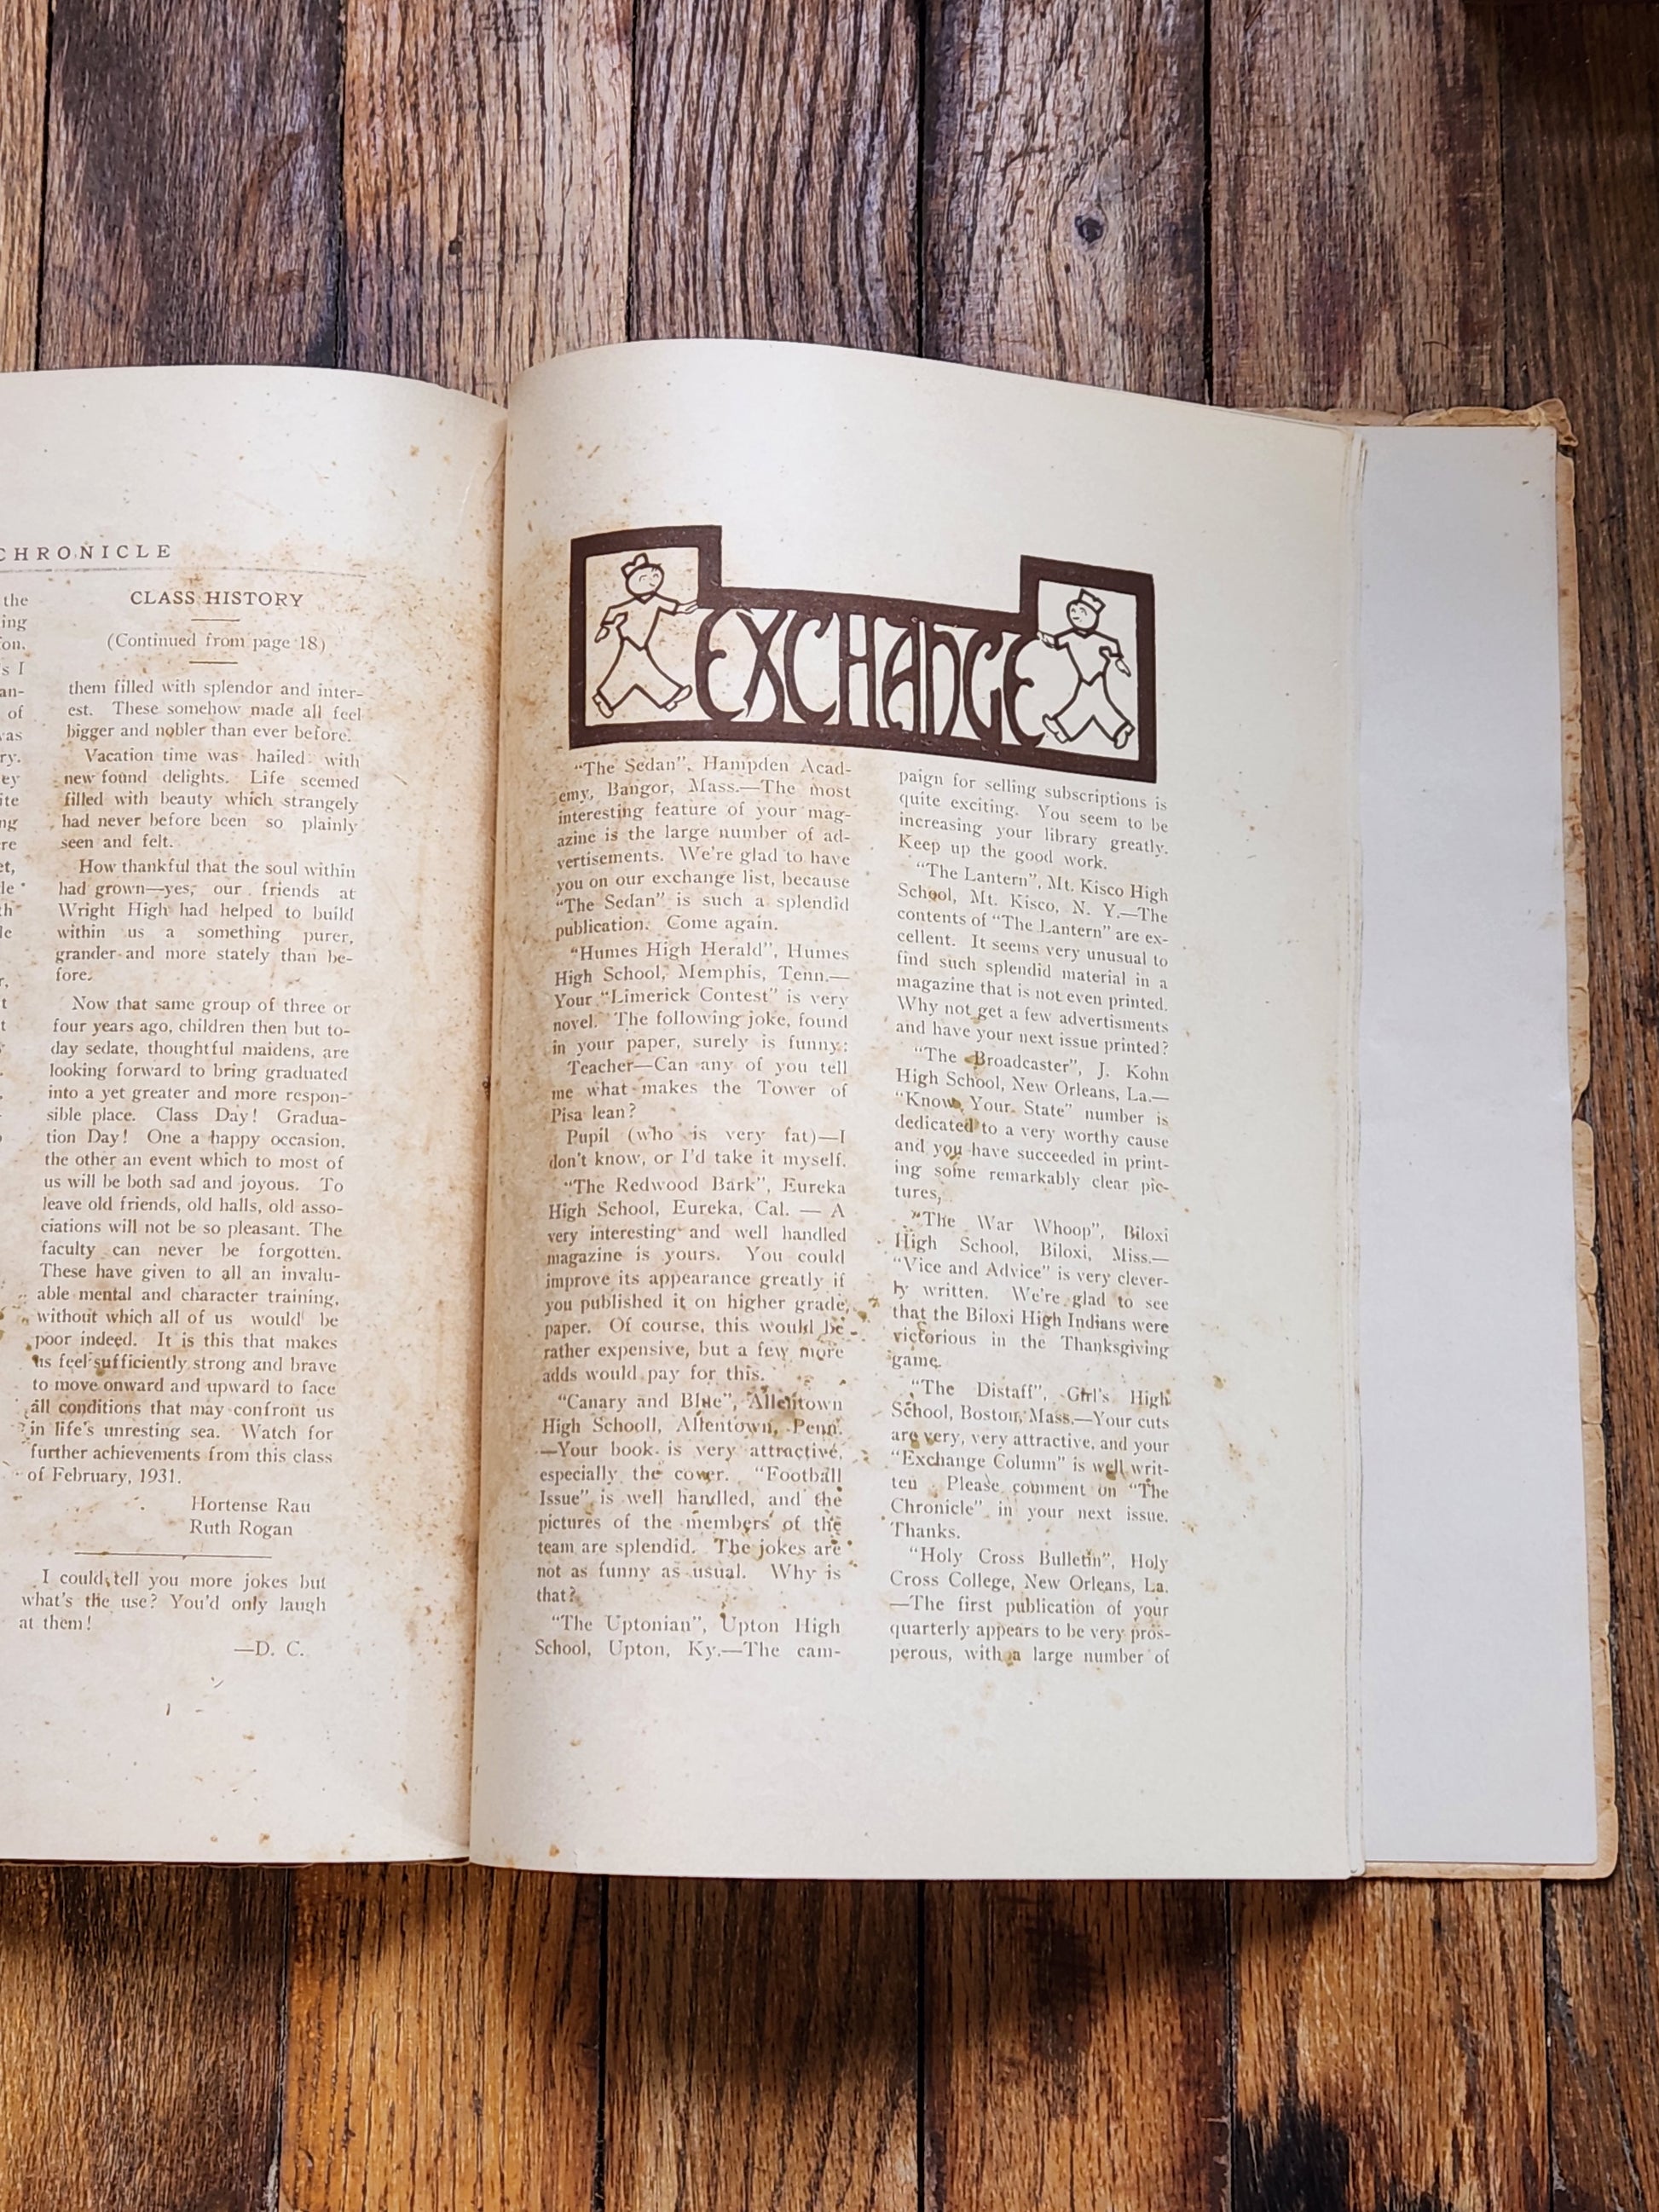 CHRONICLE
the
ing
on.
s I
an-
of
was
ry.
ey
ite
ng
re
et,
le
th
le
r,
t
t
CLASS HISTORY
(Continued from page 18)
them filled with splendor and inter-
est. These somehow made all feel
bigger and nobler than ever before.
Vacation time was hailed with
new found delights. Life seemed
filled with beauty which strangely
had never before been so plainly
seen and felt.
How thankful that the soul within
had grown—yes, our friends at
Wright High had helped to build
within us a something purer,
grander and more stately than be-
fore.
Now that same group of three or
four years ago, children then but to-
day sedate, thoughtful maidens, are
looking forward to bring graduated
into a yet greater and more respon-
sible place. Class Day! Gradua-
tion Day! One a happy occasion,
the other an event which to most of
us will be both sad and joyous. To
leave old friends, old halls, old asso-
ciations will not be so pleasant. The
faculty can never be forgotten.
These have given to all an invalu-
able mental and character training,
without which all of us would be
poor indeed. It is this that makes
us feel sufficiently strong and brave
to move onward and upward to face
all conditions that may confront us
in life's unresting sea. Watch for
further achievements from this class
of February, 1931.
Hortense Rau
Ruth Rogan
I could tell you more jokes but
what's the use? You'd only laugh
at them!
—D. C.
EXCHANGE
"The Sedan", Hampden Acad-
emy, Bangor, Mass.—The most
interesting feature of your mag-
azine is the large number of ad-
vertisements. We're glad to have
you on our exchange list, because
"The Sedan" is such a splendid
publication. Come again.
"Humes High Herald", Humes
High School, Memphis, Tenn.—
Your "Limerick Contest" is very
novel. The following joke, found
in your paper, surely is funny:
Teacher—Can any of you tell
me what makes the Tower of
Pisa lean?
Pupil (who is very fat)—I
don't know, or I'd take it myself.
"The Redwood Bark", Eureka
High School, Eureka, Cal. — A
very interesting and well handled
magazine is yours. You could
improve its appearance greatly if
you published it on higher grade
paper. Of course, this would be
rather expensive, but a few more
adds would pay for this.
"Canary and Blue", Allentown
High Schooll, Allentown, Penn.
—Your book is very attractive,
especially the cover. "Football
Issue" is well handled, and the
pictures of the members of the
team are splendid. The jokes are
not as funny as usual. Why is
that?
"The Uptonian", Upton High
School, Upton, Ky.—The cam-
paign for selling subscriptions is
quite exciting. You seem to be
increasing your library greatly.
Keep up the good work.
"The Lantern", Mt. Kisco High
School, Mt. Kisco, N. Y.—The
contents of "The Lantern" are ex-
cellent. It seems very unusual to
find such splendid material in a
magazine that is not even printed.
Why not get a few advertisments
and have your next issue printed?
"The Broadcaster", J. Kohn
High School, New Orleans, La.—
"Know Your State" number is
dedicated to a very worthy cause
and you have succeeded in print-
ing some remarkably clear pic-
tures,
"The War Whoop", Biloxi
High School, Biloxi, Miss.—
"Vice and Advice" is very clever-
ly written. We're glad to see
that the Biloxi High Indians were
victorious in the Thanksgiving
game.
"The Distaff", Girl's High
School, Boston, Mass.—Your cuts
are very, very attractive, and your
"Exchange Column" is well writ-
ten. Please comment on "The
Chronicle" in your next issue.
Thanks.
"Holy Cross Bulletin", Holy
Cross College, New Orleans, La.
—The first publication of your
quarterly appears to be very pros-
perous, with a large number of